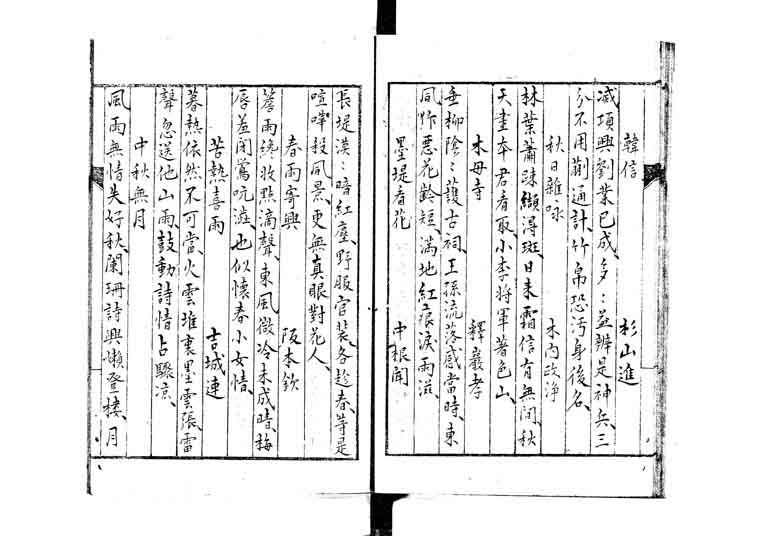 韓信　杉山進
滅項興劉業已成、多〻益辨是神兵、三
分不用蒯通計、竹帛恐汚身後名、
秋日雜咏　木内政浄
林葉蕭疎纈淂斑、日来霜信有無間、秋
天畫本君看取、小李将軍著色山、
木母寺　釋巌孝
垂柳陰〻護古祠、王孫流落感當時、東
風炸悪花齡短、満地紅痕淚雨滋、
墨堤看花　中根聞
長堤漠〻暗紅塵、野服官装各趁春、等是
喧嘩殺風景、更無真眼對花人、
春雨寄興　阪本欽
簷雨終收點滴聲、東風微冷未成晴、梅
唇羞閉鶯吭澁、也似懐春小女情、
苦熱喜雨　吉城連
暮熱依然不可當、火雲堆裏墨雲張、雷
聲忽送他山雨、鼓動詩情占驟凉、
中秋無月
風雨無情失好秋、闌珊詩興嬾登樓、月